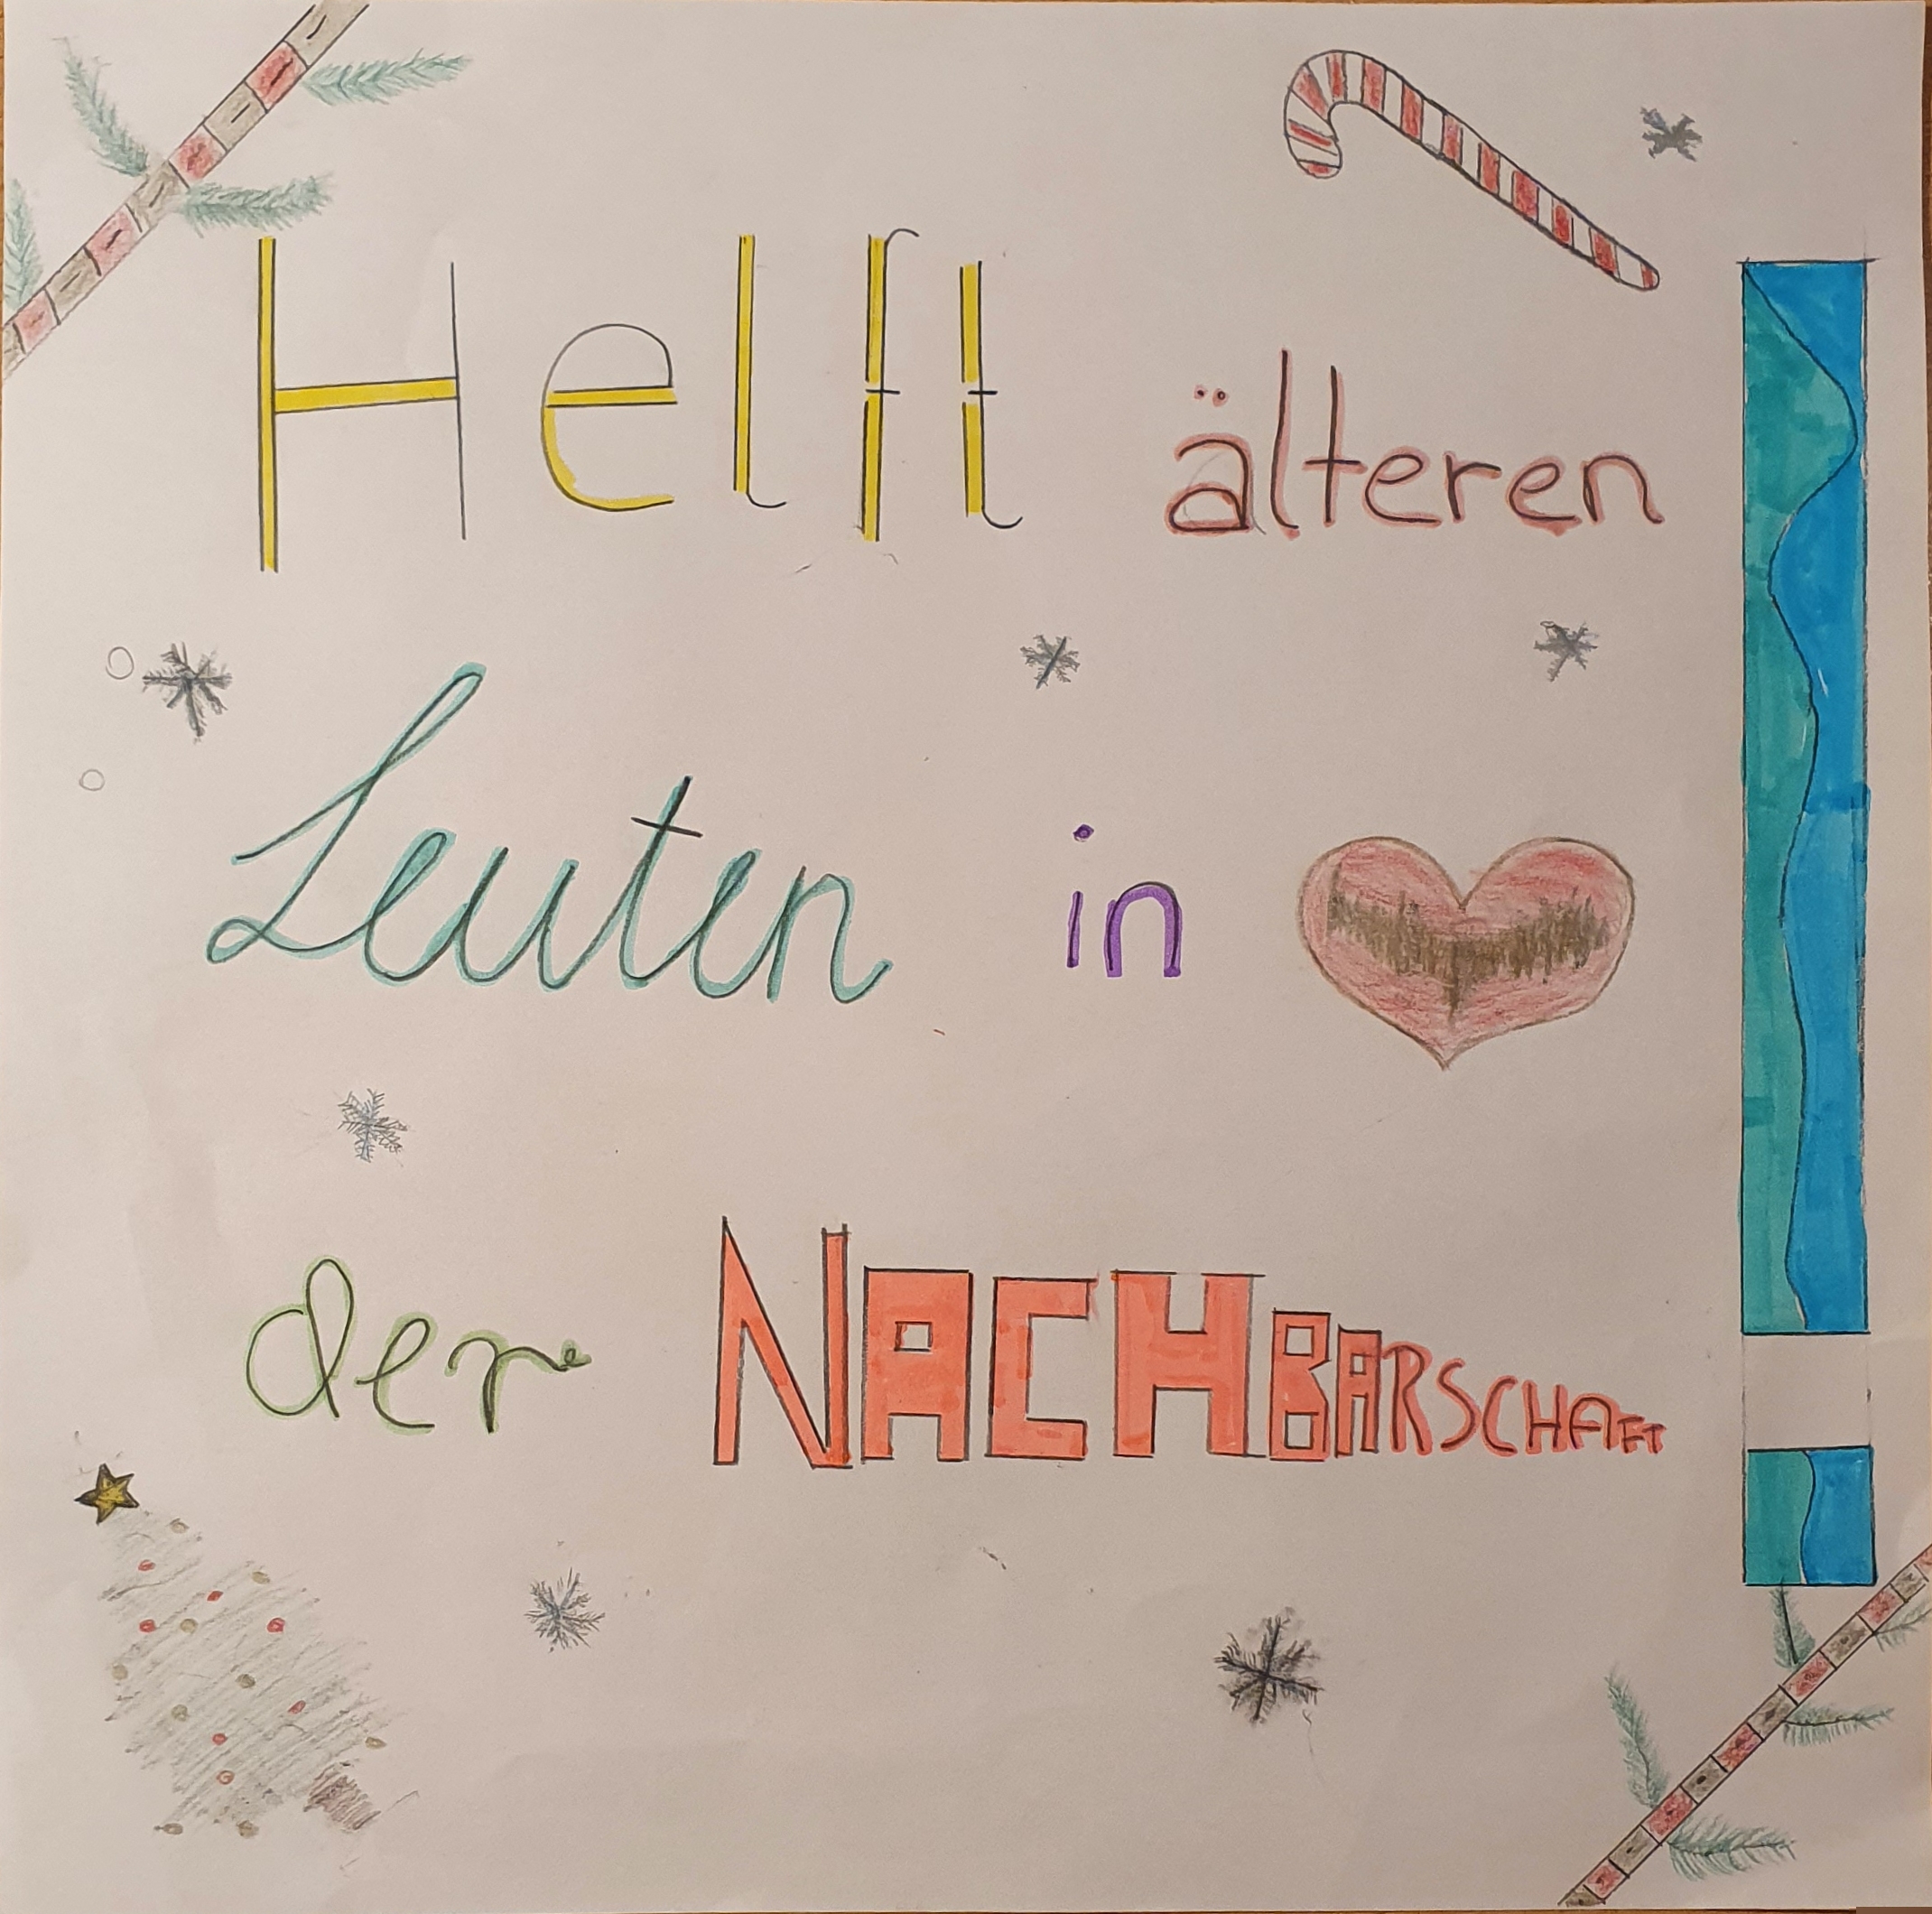 Helft älteren
Leuten in
der NACHBARSCHAFT